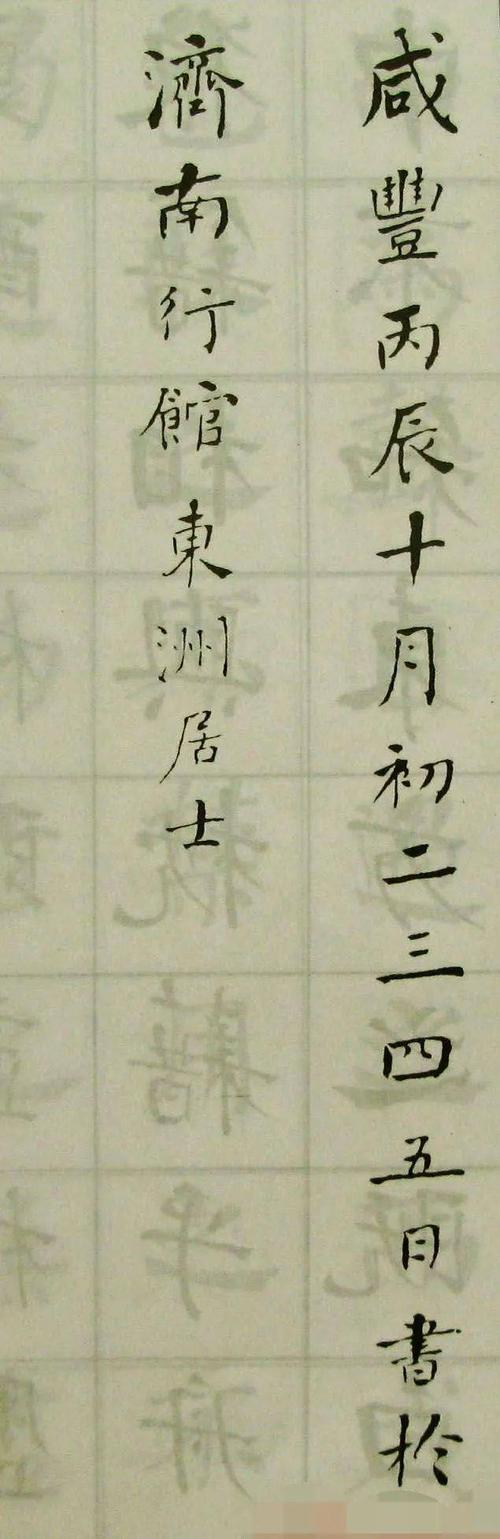 咸豐丙辰十月初二三四五日書於
濟南行館東洲居士